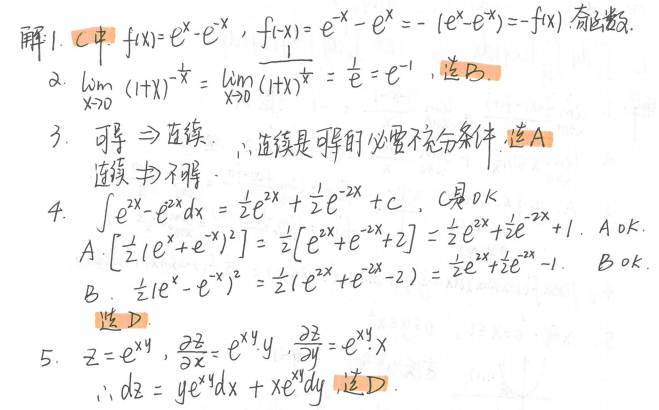 解1. C中 f(x)=e^x-e^{-x}, f(-x)=e^{-x}-e^x=-(e^x-e^{-x})=-f(x) 奇函数.
2. lim_{x→0} (1+x)^{-1/x} = lim_{x→0} 1/(1+x)^{1/x} = 1/e = e^{-1}, 选B.
3. 可导 ⇒ 连续 ∴连续是可导的必要不充分条件. 选A
连续 ⇏ 可导.
4. ∫e^{2x}-e^{-2x}dx = 1/2e^{2x}+1/2e^{-2x}+c, C是OK
A. [1/2(e^x+e^{-x})^2] = 1/2[e^{2x}+e^{-2x}+2] = 1/2e^{2x}+1/2e^{-2x}+1. A OK.
B. 1/2(e^x-e^{-x})^2 = 1/2(e^{2x}+e^{-2x}-2) = 1/2e^{2x}+1/2e^{-2x}-1. B OK.
选D.
5. z=e^{xy}, ∂z/∂x=e^{xy}·y, ∂z/∂y=e^{xy}x
∴ dz = ye^{xy}dx + xe^{xy}dy 选D.